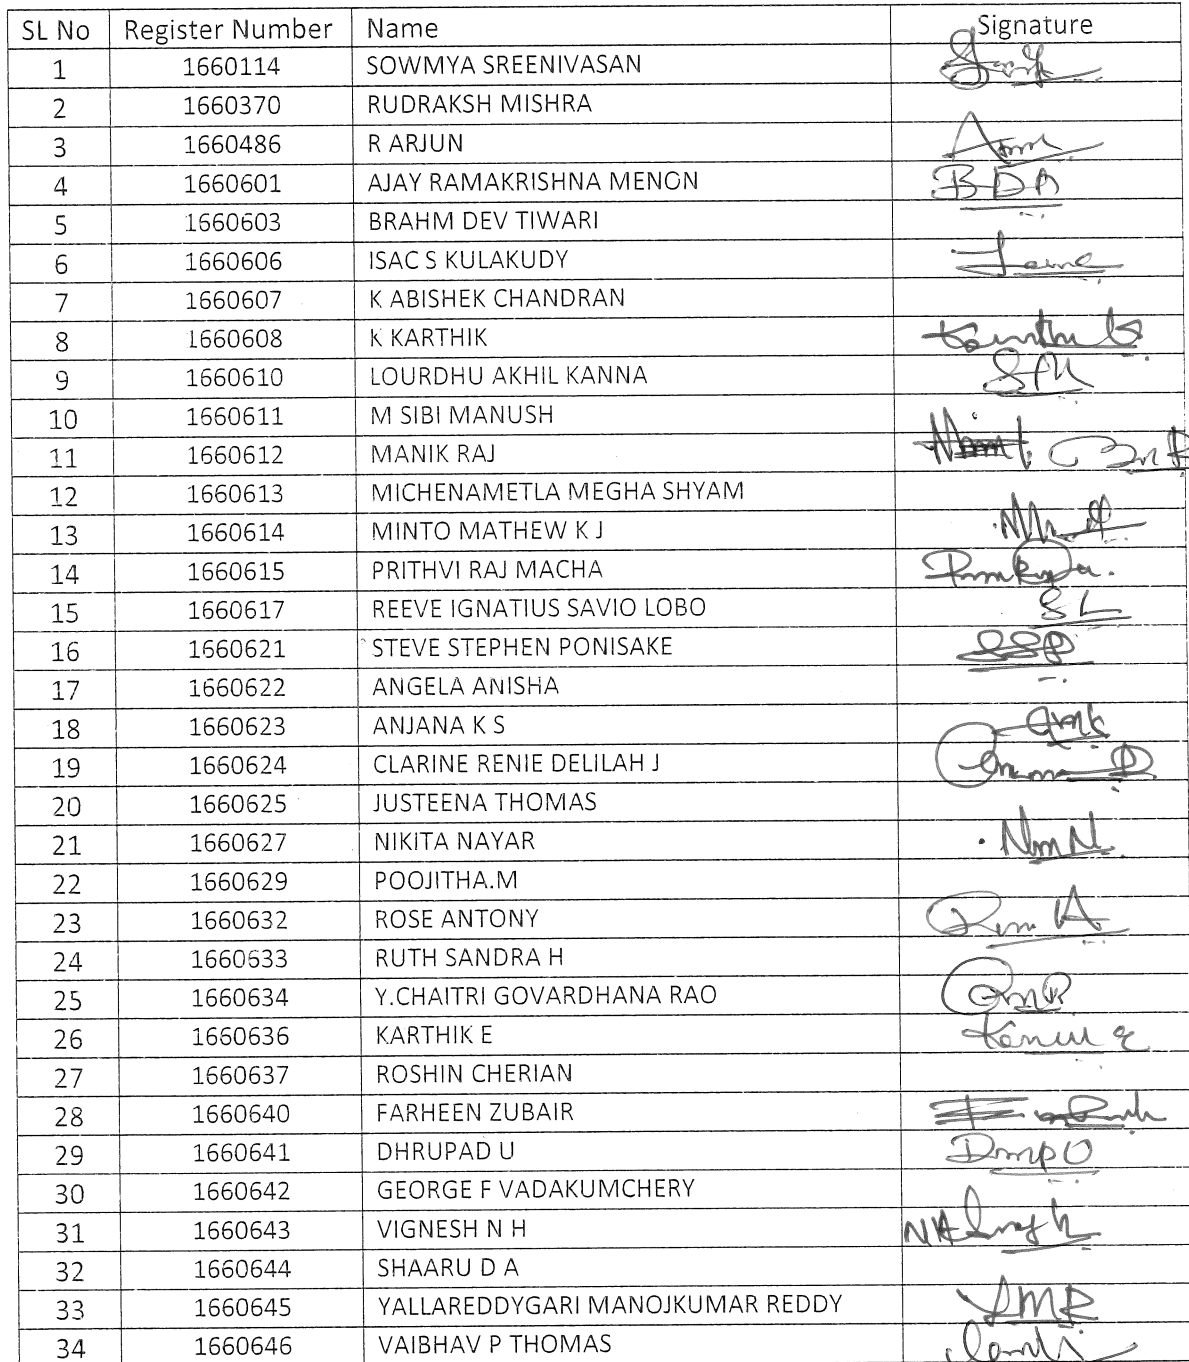 SL No Register Number Name Signature
1 1660114 SOWMYA SREENIVASAN
2 1660370 RUDRAKSH MISHRA
3 1660486 R ARJUN
4 1660601 AJAY RAMAKRISHNA MENON BDA
5 1660603 BRAHM DEV TIWARI
6 1660606 ISAC S KULAKUDY
7 1660607 K ABISHEK CHANDRAN
8 1660608 K KARTHIK
9 1660610 LOURDHU AKHIL KANNA
10 1660611 M SIBI MANUSH
11 1660612 MANIK RAJ
12 1660613 MICHENAMETLA MEGHA SHYAM
13 1660614 MINTO MATHEW K J
14 1660615 PRITHVI RAJ MACHA
15 1660617 REEVE IGNATIUS SAVIO LOBO SL
16 1660621 STEVE STEPHEN PONISAKE SSP
17 1660622 ANGELA ANISHA
18 1660623 ANJANA K S
19 1660624 CLARINE RENIE DELILAH J
20 1660625 JUSTEENA THOMAS
21 1660627 NIKITA NAYAR
22 1660629 POOJITHA.M
23 1660632 ROSE ANTONY
24 1660633 RUTH SANDRA H
25 1660634 Y.CHAITRI GOVARDHANA RAO
26 1660636 KARTHIK E
27 1660637 ROSHIN CHERIAN
28 1660640 FARHEEN ZUBAIR
29 1660641 DHRUPAD U
30 1660642 GEORGE F VADAKUMCHERY
31 1660643 VIGNESH N H
32 1660644 SHAARU D A
33 1660645 YALLAREDDYGARI MANOJKUMAR REDDY YMR
34 1660646 VAIBHAV P THOMAS